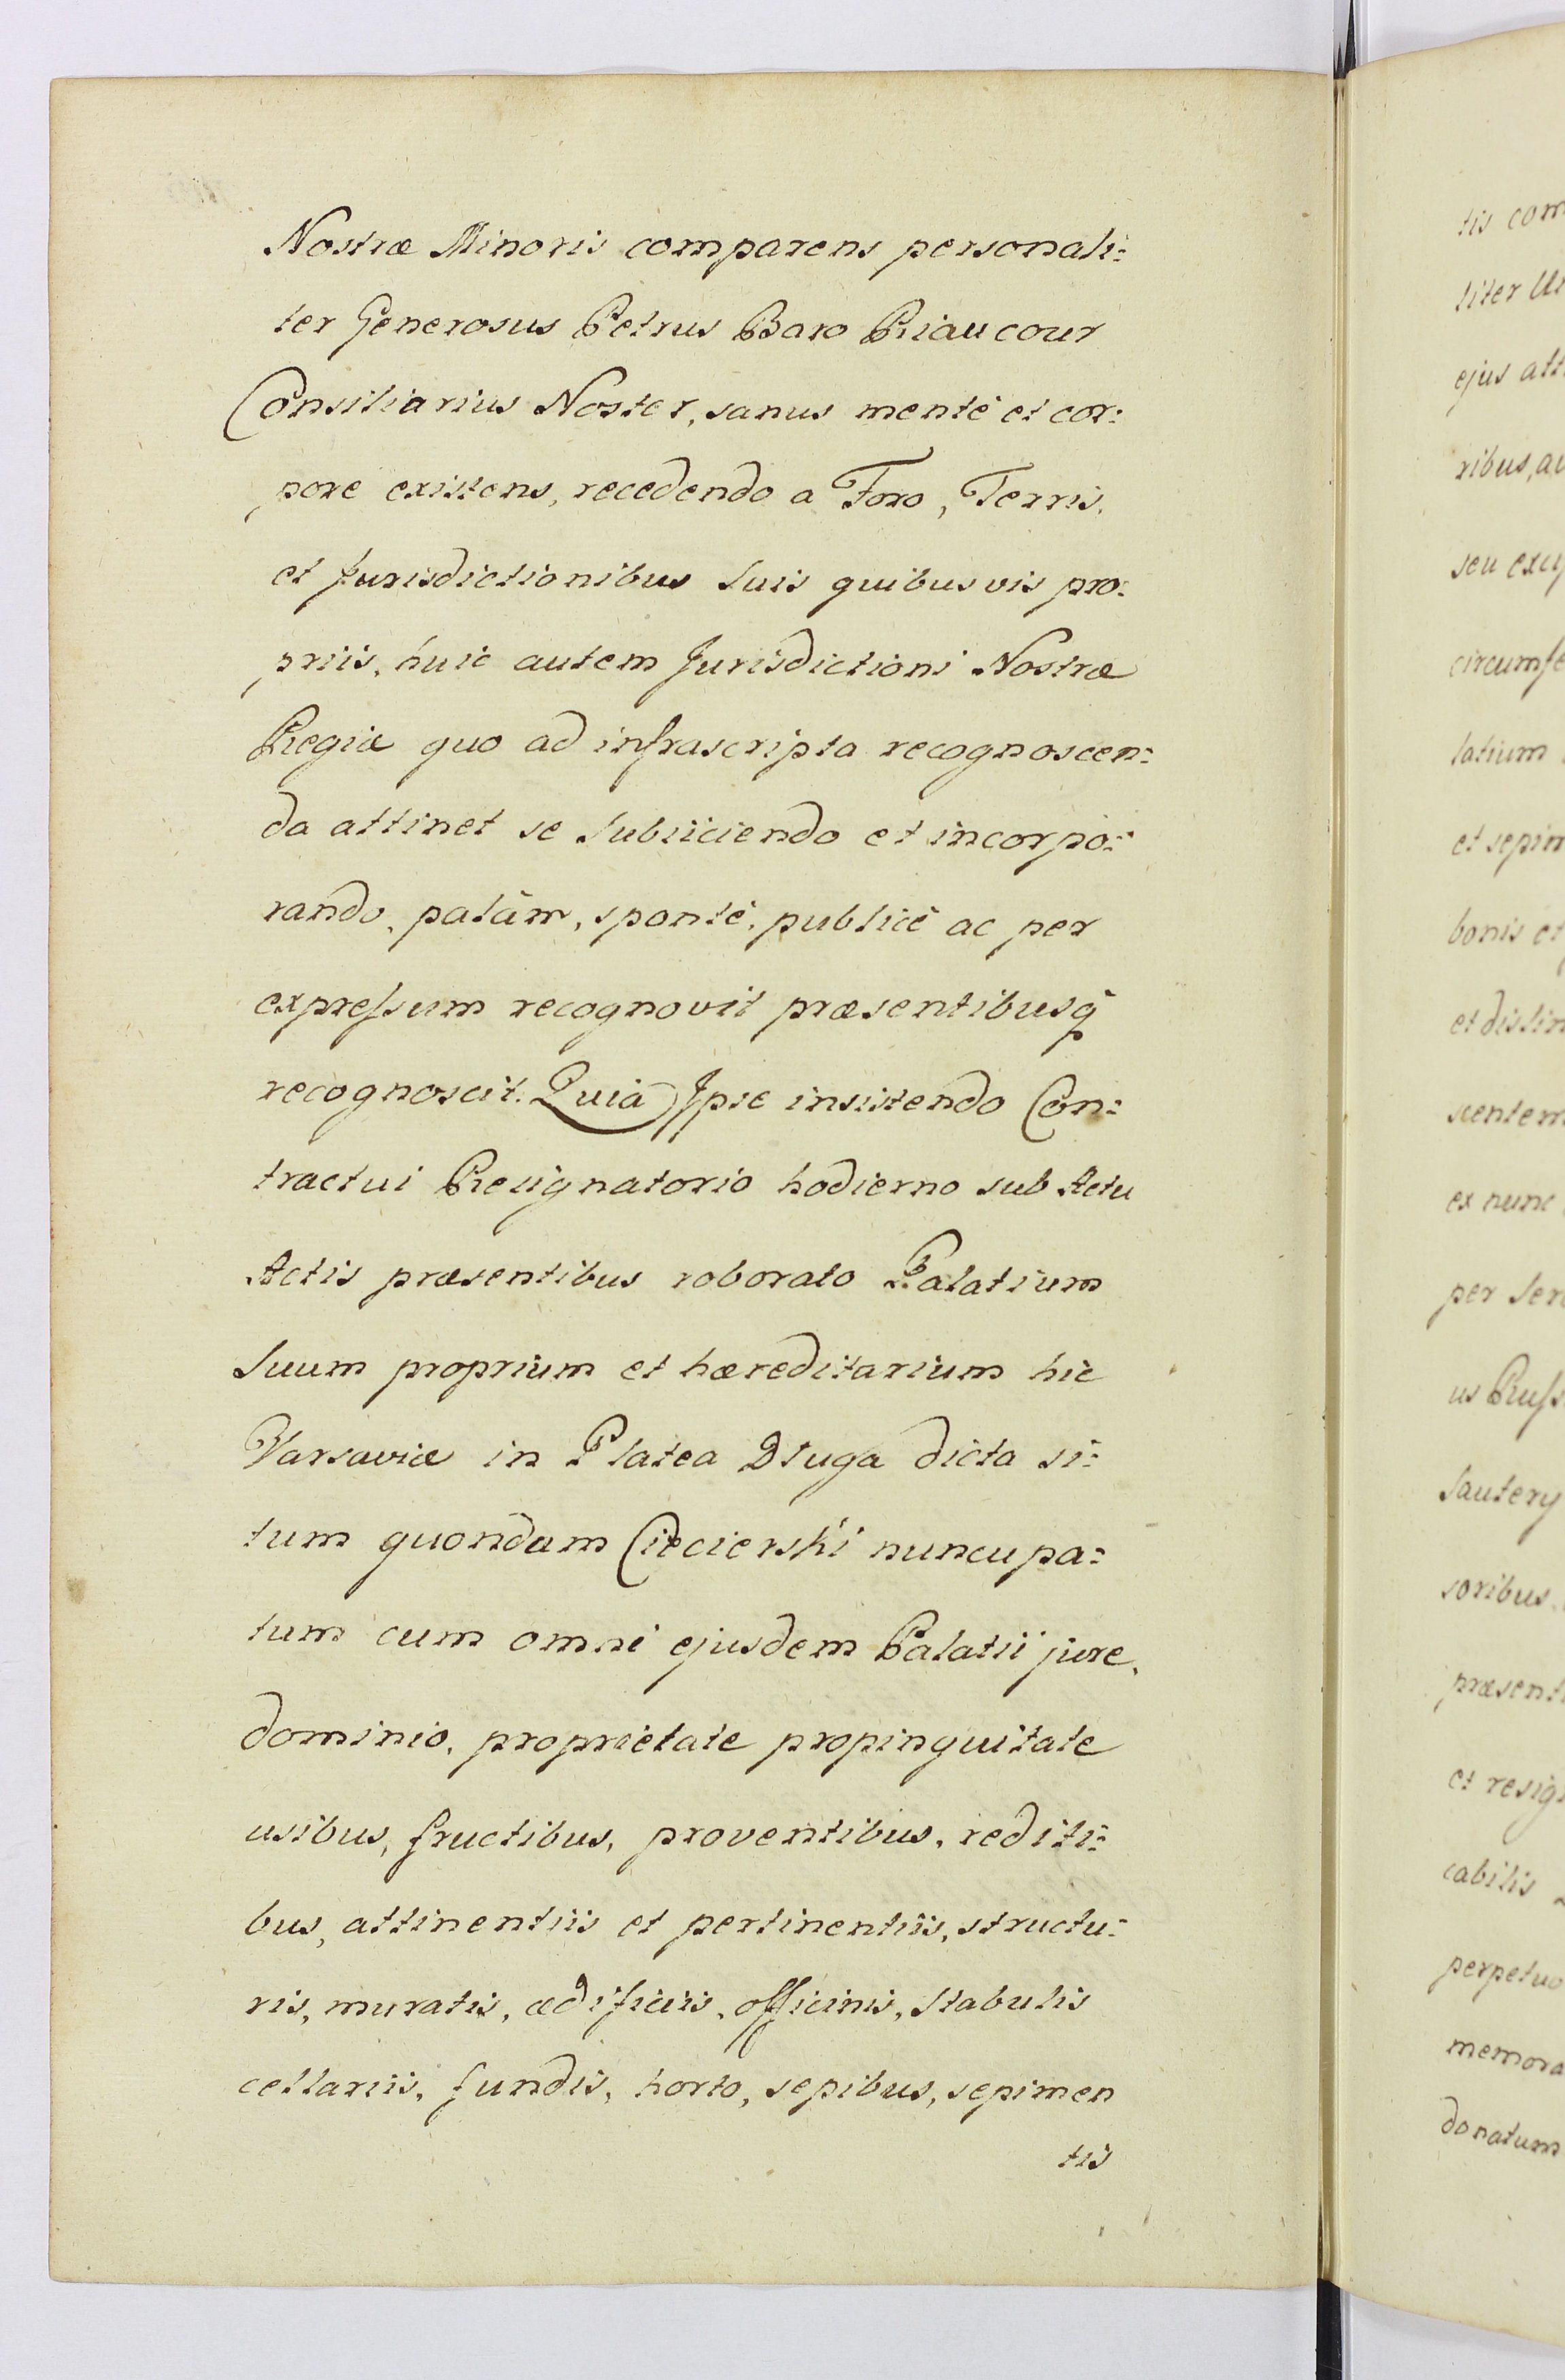 Nostræ Minoris comparens personali:
ter Generosus Petrus Baro Riaucour
Consiliarius Noster, sanus mentè et cor:
pore existens, recedendo a Foro, Terris,
et Jurisdictionibus Suis quibusvis pro:
priis, huic autem Jurisdictioni Nostræ
Regiæ quo ad infrascripta recognoscen:
da attinet se Subiiciendo et incorpo:
rando, palàm, spontè, publicè ac per
expressum recognovit præsentibusq
recognoscit. Quià Ipse insistendo Con:
tractui Resignatorio hodierno sub Actu
Actis præsentibus roborato Palatium
Suum proprium et hæreditarium hic
Varsaviæ in Platea Długa dicta si:
tum quondam Ciecierski nuncupa:
tum cum omni ejusdem Palatii jure,
dominio, proprietate propinquitate
usibus, fructibus, proventibus, rediti:
bus, attinentiis et pertinentiis, structu:
ris, muratis, ædificiis, officinis, Stabulis
cellariis, fundis, horto, sepibus, sepimen
tis
tis com
liter
ejus att
ribus, au
seu
circumfe
latium
et sepim
bonis et
et distin
scentem
ex nunc
per Ser
us Russ
Sautery
soribus
præsent
et resig
cabilis
perpetuo
memora
donatum